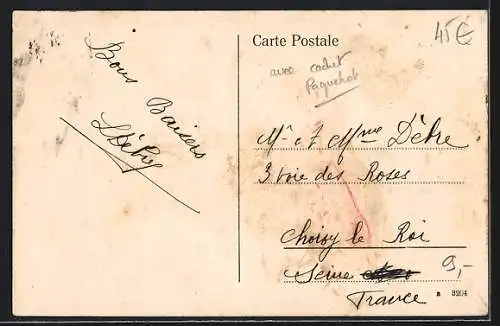 Carte Postale
45€
avec cachet
Paquebot
Bons
Baisers
Mr et Mme Dètre
3 voie des Roses
Choisy le Roi
Seine
9,-
France
B 3204